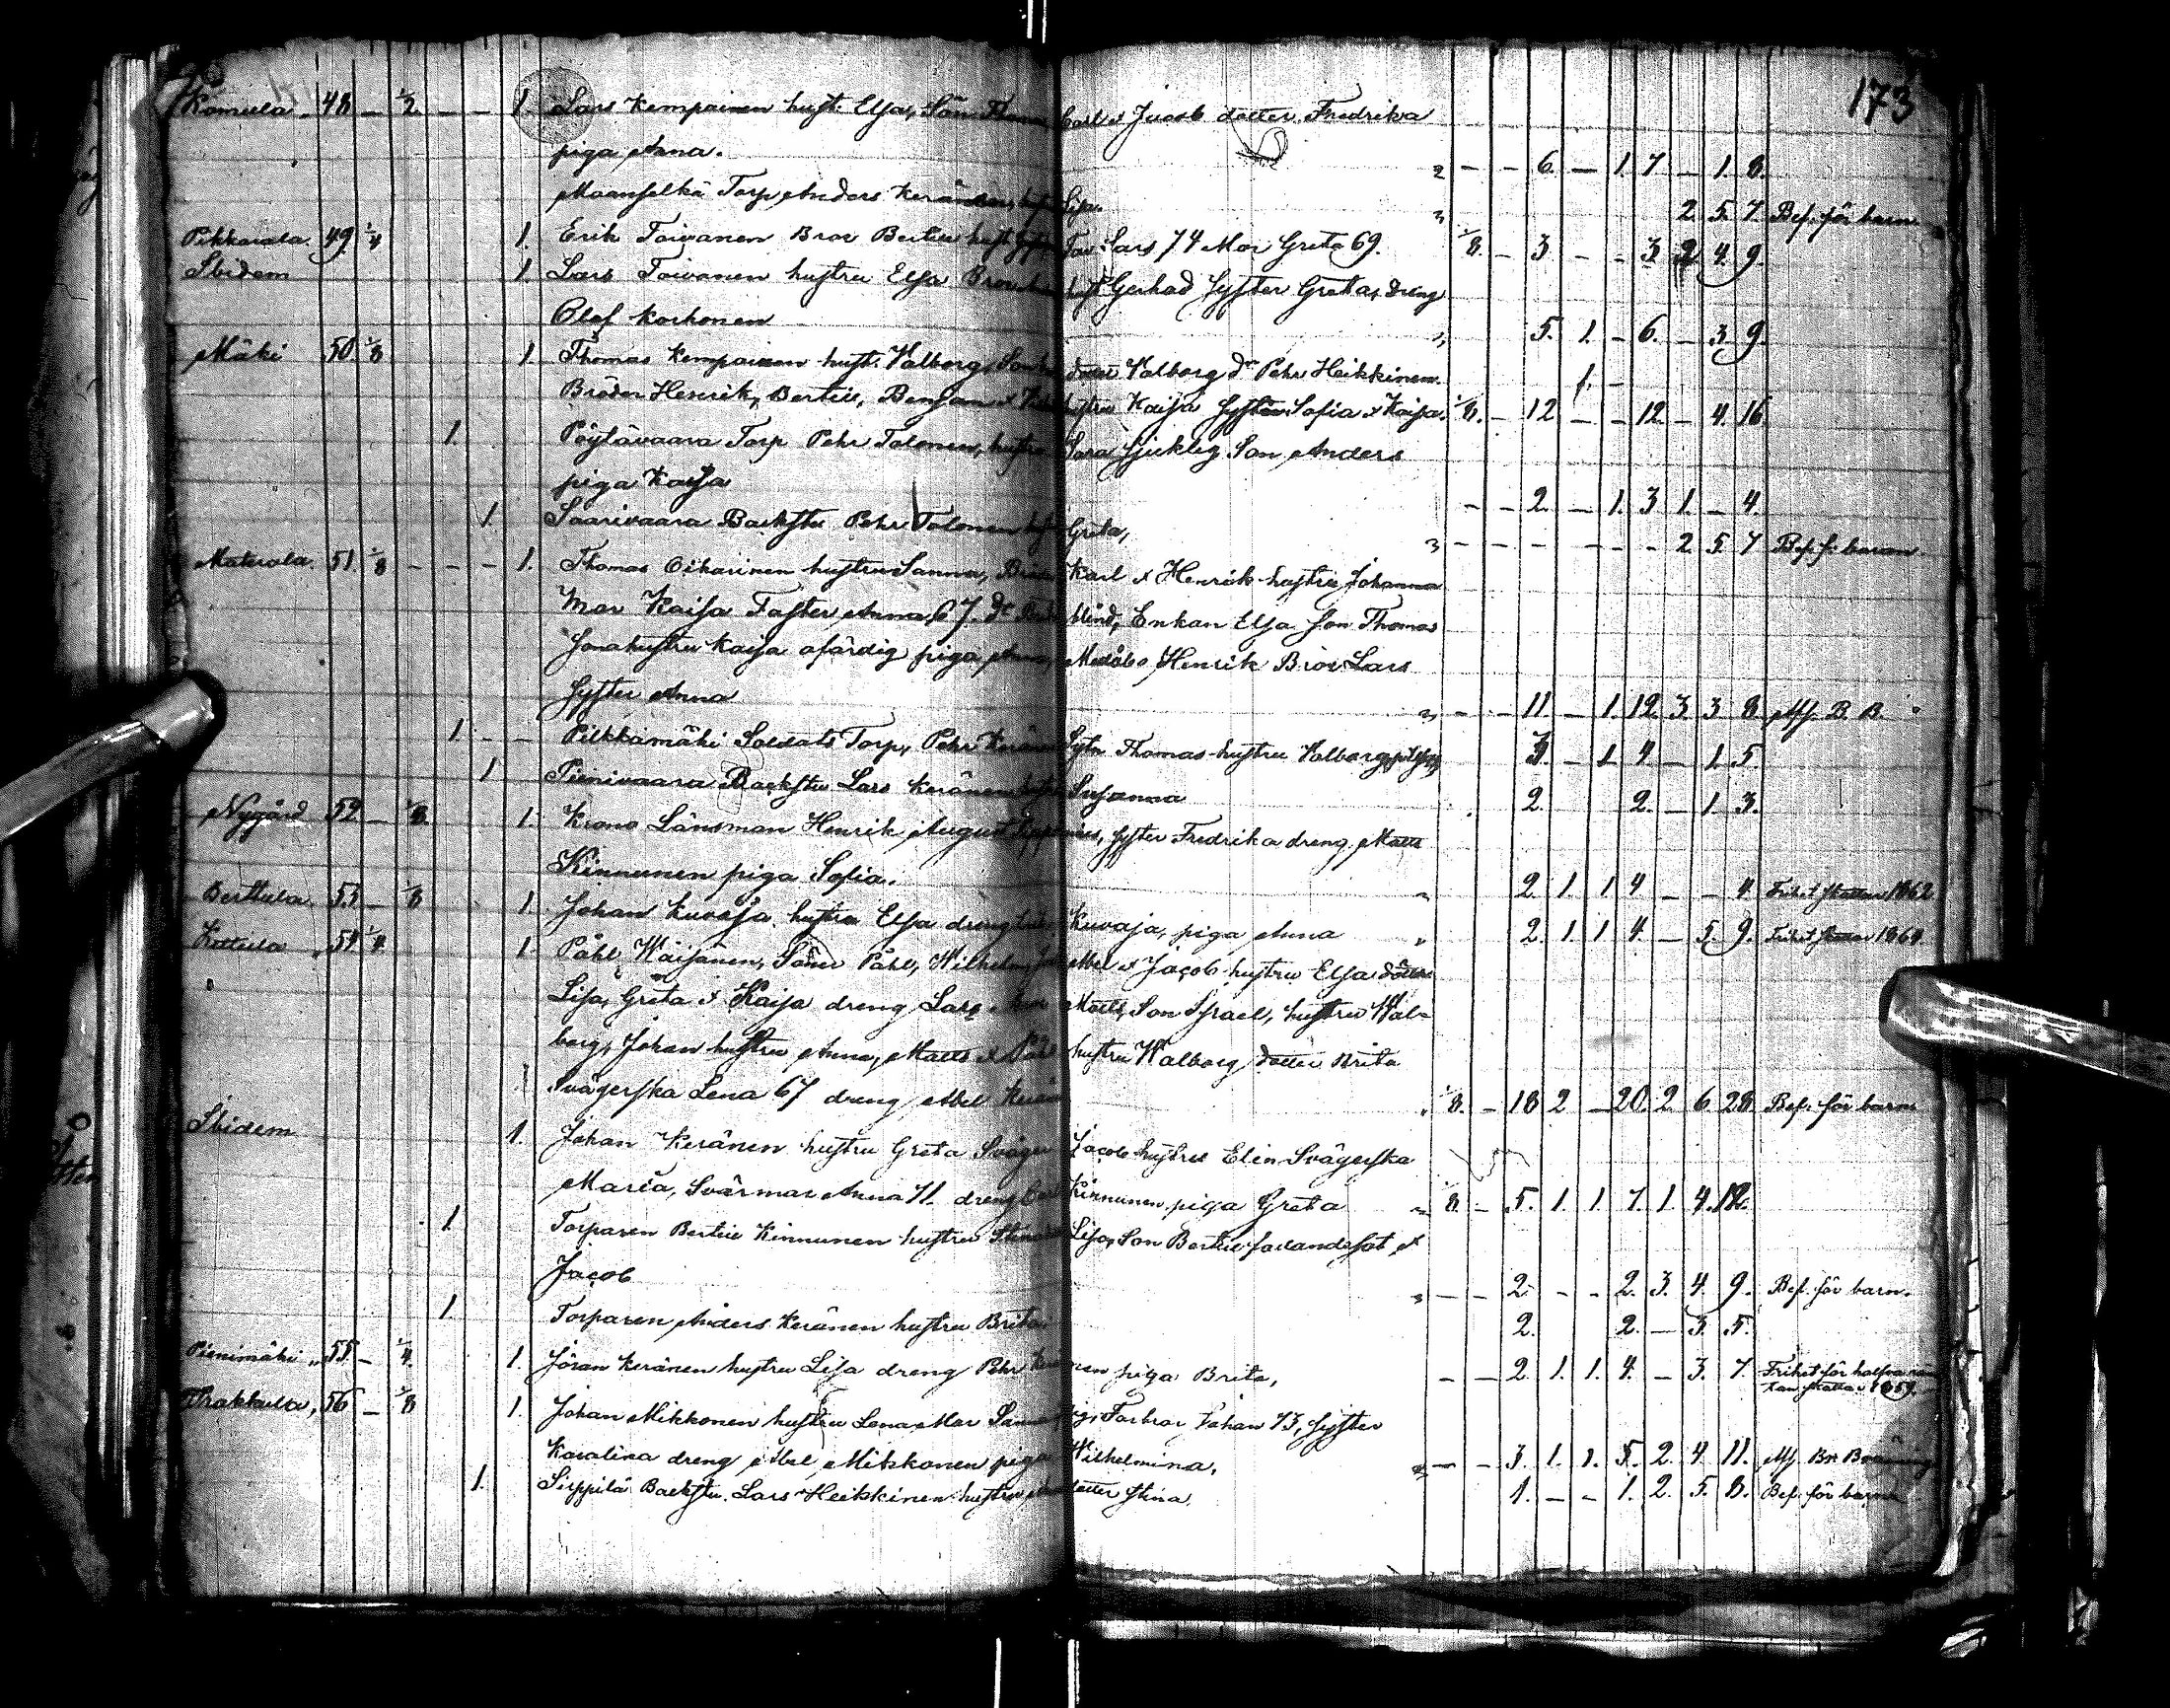 173
Komula 48 — 1/2 — — 1. Lars Kempainen hust. Elsa, Son Carl & Jacob dotter Fredrika
piga Anna. — — 6. — 1. 7 — 1. 8.
Maanselkä Torp Anders Keränen, Lisa. 2 5. 7 Bef. för barn
Pikkarala 49 1/4 1. Erik Toivanen Bror Bertil hust Far Lars 74 Mor Greta 69. 1/8. — 3 — — 3. 2 4. 9.
Ibidem 1. Lars Toivanen hustru Elsa Bror Gerhad Syster Greta, dreng
Olof Korhonen 5. 1. — 6. — 3 9.
Mäki 50 1/8 1. Thomas Kempainen hust. Valborg, dotter Valborg dr Pehr Heikkinen. 1. —
Bröder Henrik, Bertil, Benjam & hustru Kaisa Syster Sofia & Kaisa. 1/8. — 12 — — 12 — 4. 16.
1. Pöytävaara Torp Pehr Tolonen, hustru Sara sjuklig Son Anders
piga Kaisa — — 2. — 1. 3 1. — 4.
1. Saarivaara Backstu Pehr Tolonen Greta, — — — — — — 2 5. 7 Bef. f. barn
Materola. 51 1/8 — — — — 1. Thomas Oikarinen hustru Sanna, Karl & Henrik hustru Johanna
Mor Kaisa Faster Anna, 67. dr blind, Enkan Elsa Son Thomas
Jona hustru Kaisa ofärdig piga Henrik Bror Lars
Syster Anna — — 11. — 1. 12. 3. 3 8 B. B.
1. — — Pilkkämäki Soldats Torp, Pehr Thomas hustru Valborg, 3. — 1. 4 — 1. 5.
1 Pienivaara Backstu Lars Keränen Susanna 2. 2. — 1. 3.
Nygård 52 — 1/8. 1. Krono Länsman Henrik August Syster Fredrika dreng Matts
Kinnunen piga Sofia. 2. 1. 1. 4 — — 4. Frihet skattar 1862
Berttula 53 — 1/8 1. Johan Kuvaja hustru Elsa dreng Kuvaja, piga Anna 2. 1. 1. 4. — 5. 9. Frihet skattar 1864.
Kettula 54 1/4. 1. Påhl Wäisänen, Söner Påhl, Wilhelm, Abel & Jacob hustru Elsa dötter
Lisa, Greta & Kaisa dreng Lars Matts, Son Israel, hustru Wal-
borg, Johan hustru Anna, Matts & Påhl hustru Walborg, dotter Brita
Svägerska Lena 67 dreng Abel 1/8. — 18 2 — 20. 2. 6. 28. Bef. för barn
Ibidem 1. Johan Keränen hustru Greta Svåger Jacob hustru Elin Svägerska
Maria, Svärmor Anna 71 dreng Kinnunen piga Greta 1/8 — 5. 1. 1. 7. 1. 4. 12.
1. Torparen Bertil Kinnunen hustru Stina Lisa, Son Bertil &
Jacob — — 2. — — 2. 3. 4. 9. Bef. för barn.
1. Torparen Anders Keränen hustru Brita 2. 2. — 3. 5.
Pienimäki 55 — 1/4. 1. Jöran Keränen hustru Lisa dreng Pehr piga Brita, — — 2. 1. 1. 4. — 3. 7. Frihet för
skattar
56 — 1/8 1. Johan Mikkonen hustru Lena Mor Farbror Johan 73, Syster
Karolina dreng Abel Mikkonen piga Wilhelmina, — — 3. 1. 1. 5. 2. 4. 11.
1. Sirppilä Backstu. Lars Heikkinen hustru dotter Stina. 1. — — 1. 2. 5. 8. Bef. för barn